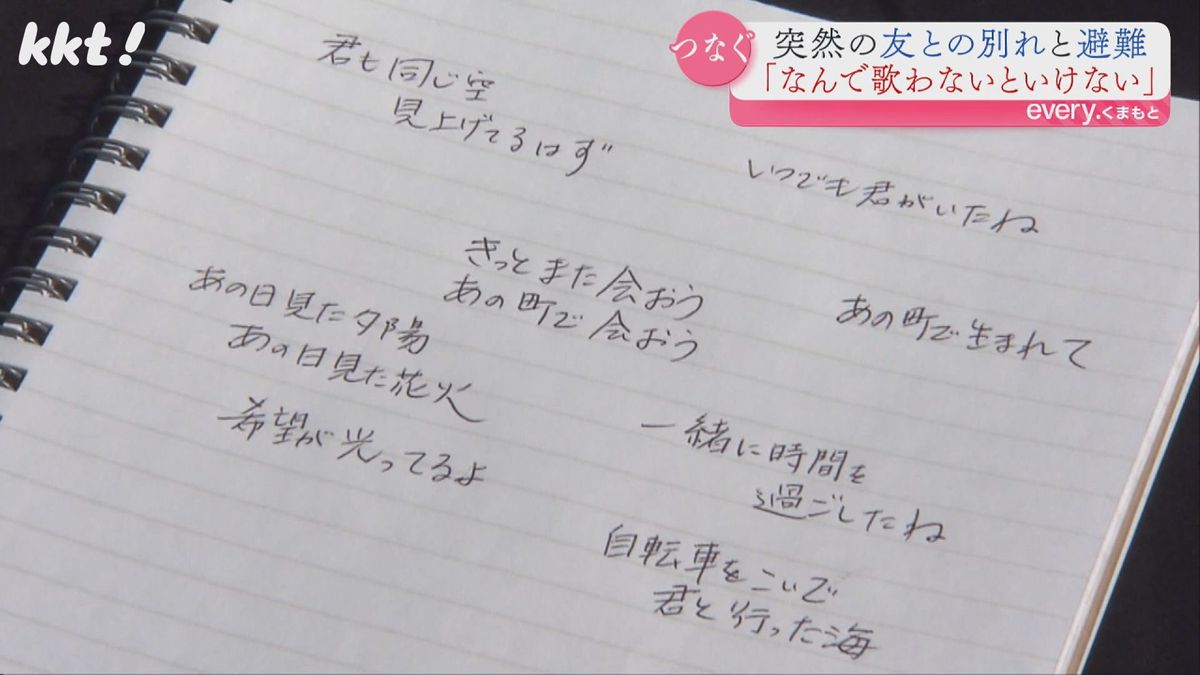 kkt!
つなぐ
突然の友との別れと避難
「なんで歌わないといけない」
every.くまもと
君も同じ空
見上げてるはず
いつでも君がいたね
きっとまた会おう
あの町で会おう
あの町で生まれて
あの日見た夕陽
あの日見た花火
希望が光ってるよ
一緒に時間を
過ごしたね
自転車をこいで
君と行った海